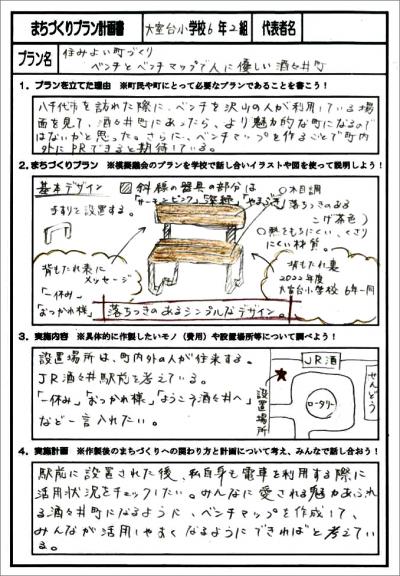 まちづくりプラン計画書 大室台小学校6年2組 代表者名
プラン名 住みよい町づくり
ベンチとベンチマップで人に優しい酒々井町
1. プランを立てた理由 ※町民や町にとって必要なプランであることを書こう！
八千代市を訪れた際に、ベンチを沢山の人が利用している場
面を見て、酒々井町にあったら、より魅力的な町になるので
はないかと思った。さらに、ベンチマップを作ることで町内
外にPRできると期待している。
2. まちづくりプラン ※模擬議会のプランを学校で話し合いイラストや図を使って説明しよう！
基本デザイン
斜線の器具の部分は
「サーモンピンク」「深緑」「やまぶき」
手すりを設置する。
○木目調
落ちつきのある
こげ茶色
○熱をもちにくい、くさり
にくい材質。
背もたれ表に
メッセージ
「一休み」
「おつかれ様」
背もたれ裏
2022年度
大室台小学校 6年一同
落ちつきのあるシンプルなデザイン。
3. 実施内容 ※具体的に作製したいモノ（費用）や設置場所等について調べよう！
設置場所は、町内外の人が往来する。
JR酒々井駅前を考えている。
「一休み」「おつかれ様」「ようこう酒々井へ」
など一言入れたい。
JR酒
設置場所
ロータリー
せんどう
4. 実施計画 ※作製後のまちづくりへの関わり方と計画について考え、みんなで話し合おう！
駅前に設置された後、私自身も電車を利用する際に
活用状況をチェックしたい。みんなに愛される魅力あふれ
る酒々井町になるように、ベンチマップを作成して、
みんなが活用しやすくなるようにできればと考えてい
る。